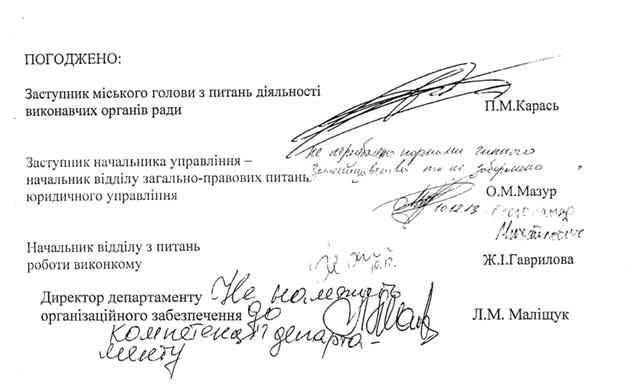 ПОГОДЖЕНО:
Заступник міського голови з питань діяльності
виконавчих органів ради
П.М.Карась
не передбачено нормами чинного
Заступник начальника управління –
законодавства та не заборонено
начальник відділу загально-правових питань
юридичного управління
О.М.Мазур
10.12.13
Начальник відділу з питань
роботи виконкому
Ж.І.Гаврилова
Директор департаменту Не належить
організаційного забезпечення до
Л.М. Маліщук
компетенції департа-
менту